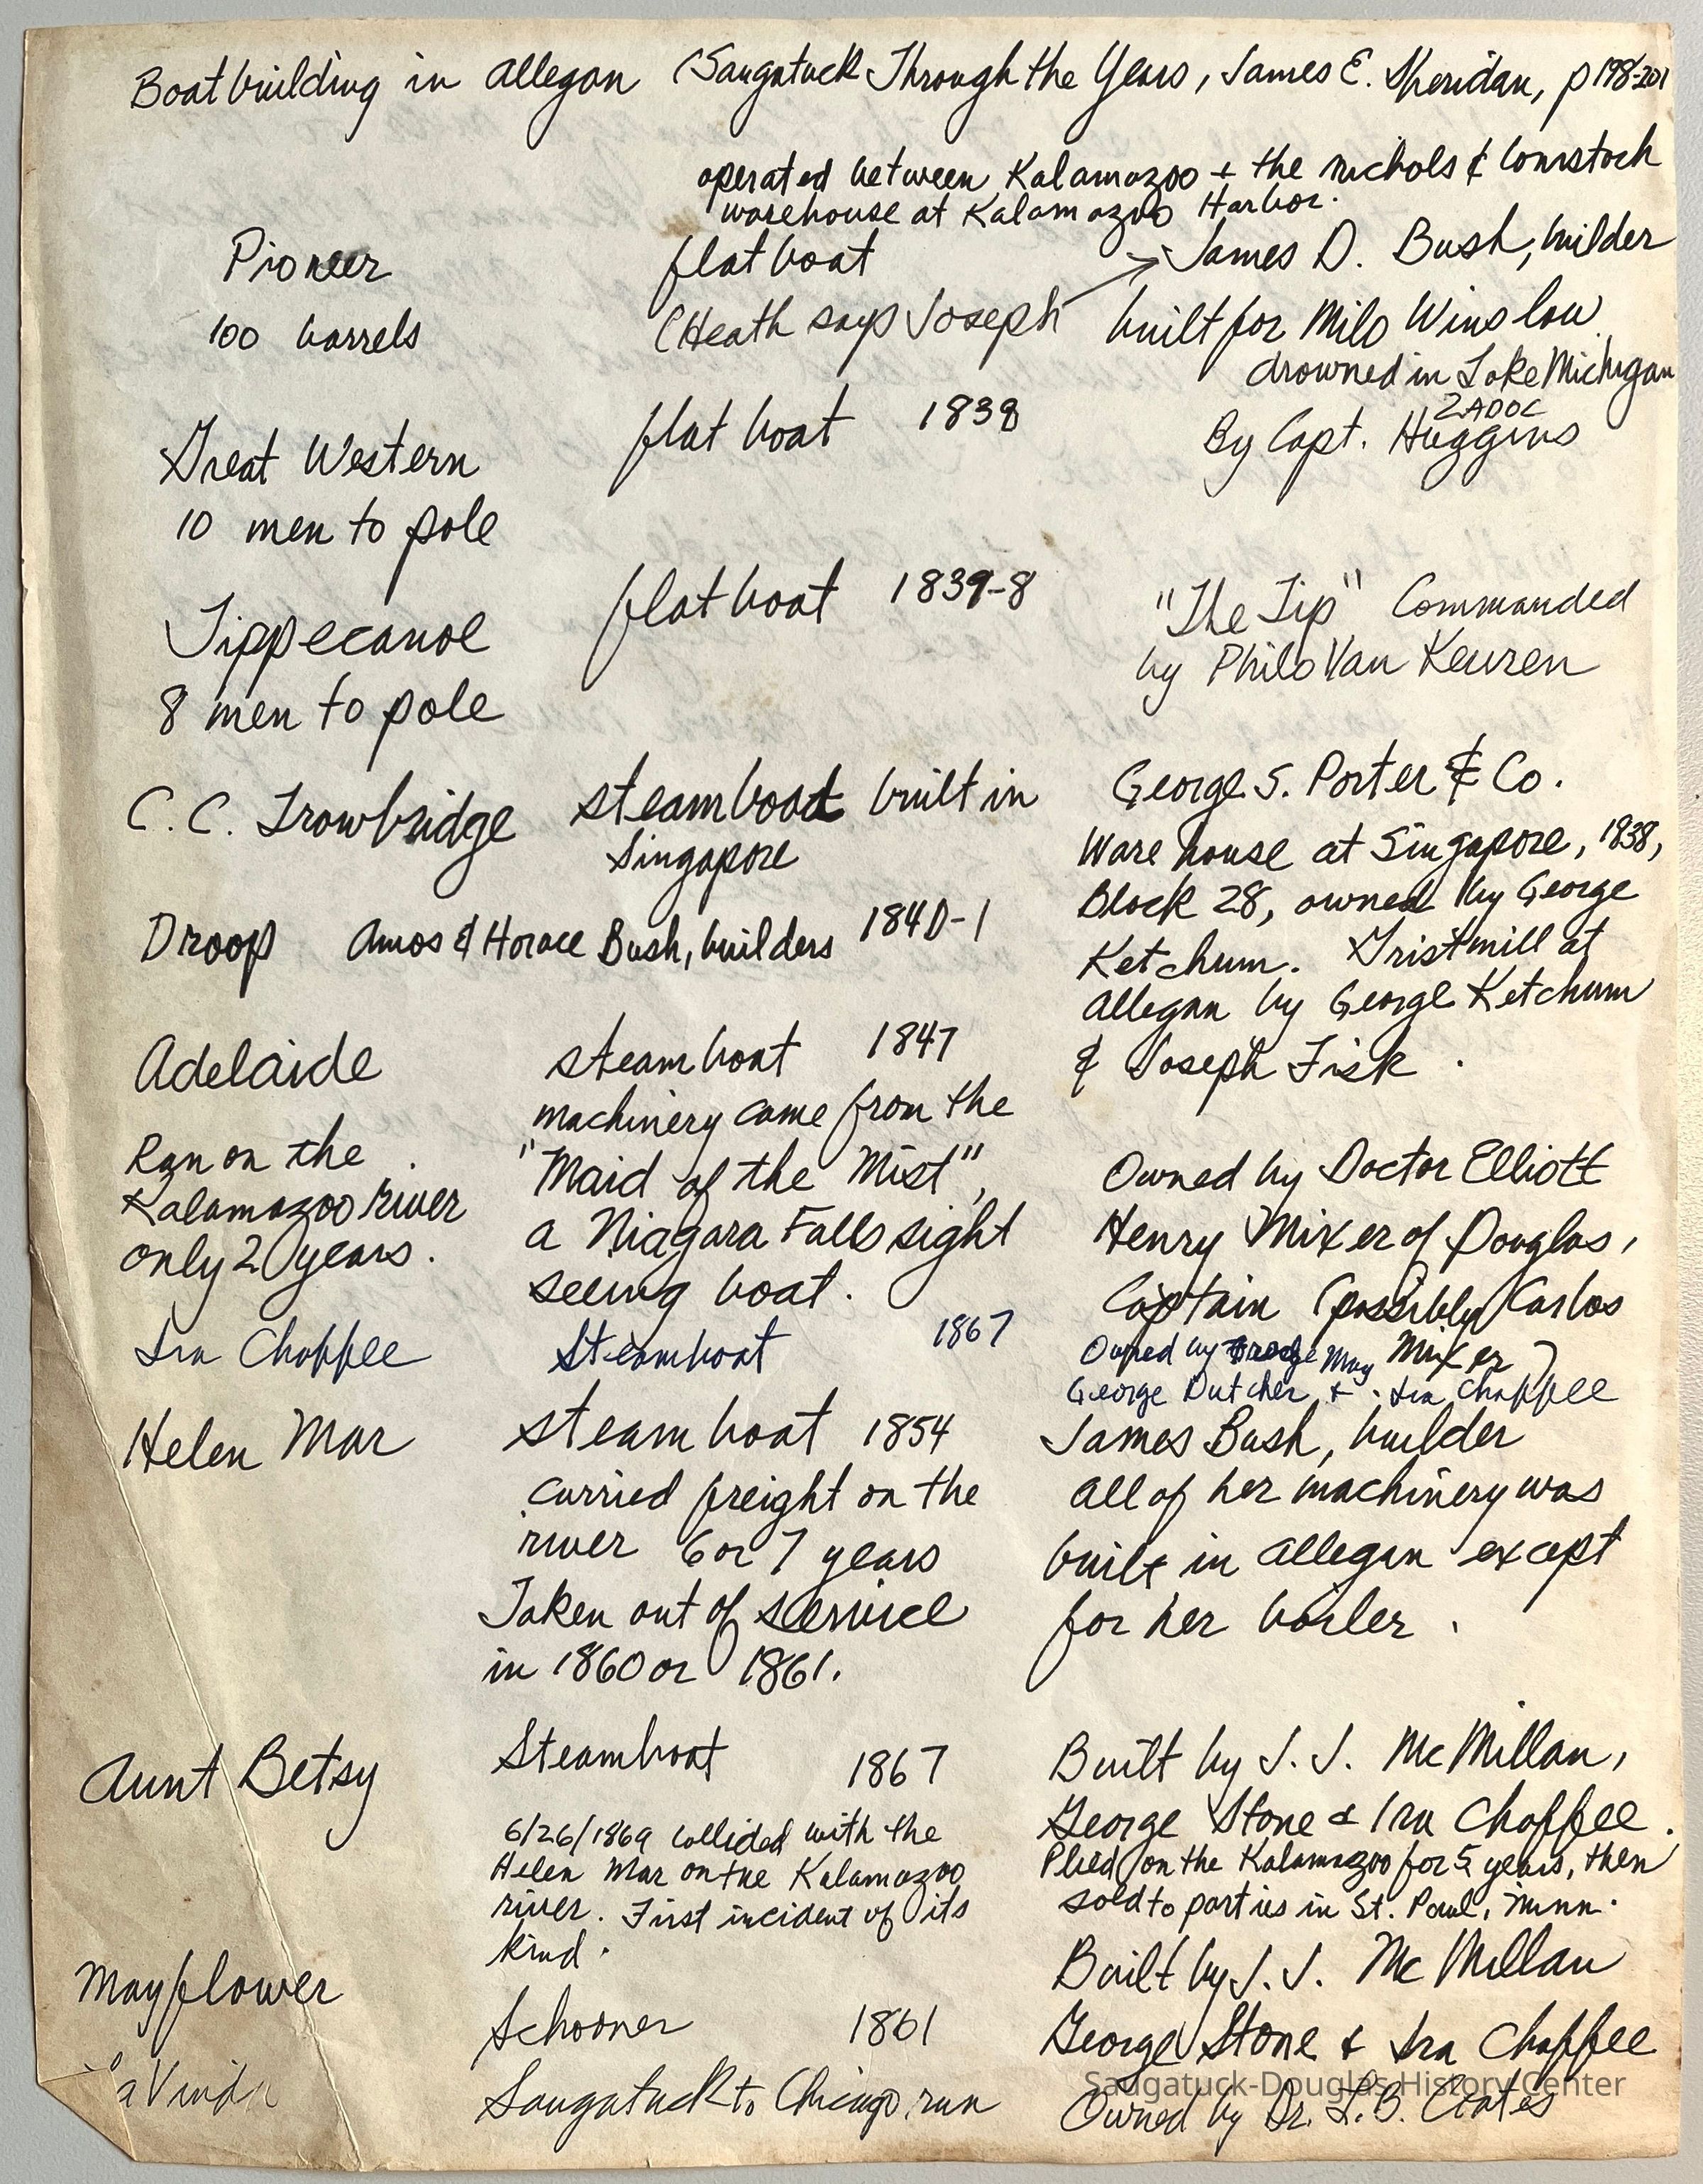 Boatbuilding in Allegan (Saugatuck Through the Years, James E. Sheridan, p 198-201
operated between Kalamazoo + the Nichols & Comstock
warehouse at Kalamazoo Harbor.
Pioneer flat boat James D. Bush, builder
100 barrels (Heath says Joseph built for Milo Winslow
drowned in Lake Michigan
Great Western flat boat 1838 By Capt. ZADOC Huggins
10 men to pole
Tippecanoe flat boat 1839-8 "The Tip" Commanded
by Philo Van Keuren
8 men to pole
C.C. Trowbridge steamboat built in George S. Porter & Co.
Singapore Warehouse at Singapore, 1838,
Block 28, owned by George
Droop Amos & Horace Bush, builders 1840-1 Ketchum. Gristmill at
Allegan by George Ketchum
Adelaide steamboat 1847 & Joseph Fisk.
machinery came from the
Ran on the "Maid of the Mist", Owned by Doctor Elliott
Kalamazoo river a Niagara Falls sight Henry Mixer of Douglas,
only 2 years. seeing boat. Captain (possibly Carlos
Mixer)
Ira Chaffee Steamboat 1867 Owned by May
George Dutcher, + Ira Chaffee
Helen Mar steamboat 1854 James Bush, builder
carried freight on the All of her machinery was
river 6 or 7 years built in Allegan except
Taken out of service for her boiler.
in 1860 or 1861.
Aunt Betsy Steamboat 1867 Built by J. J. McMillan,
6/26/1869 collided with the George Stone & Ira Chaffee.
Helen Mar on the Kalamazoo Plied on the Kalamazoo for 5 years, then
river. First incident of its sold to parties in St. Paul, Minn.
kind.
Mayflower Schooner 1861 Built by J. J. McMillan
George Stone & Ira Chaffee
Saugatuck to Chicago run Owned by Dr. L.B. Coates
Saugatuck-Douglas History Center